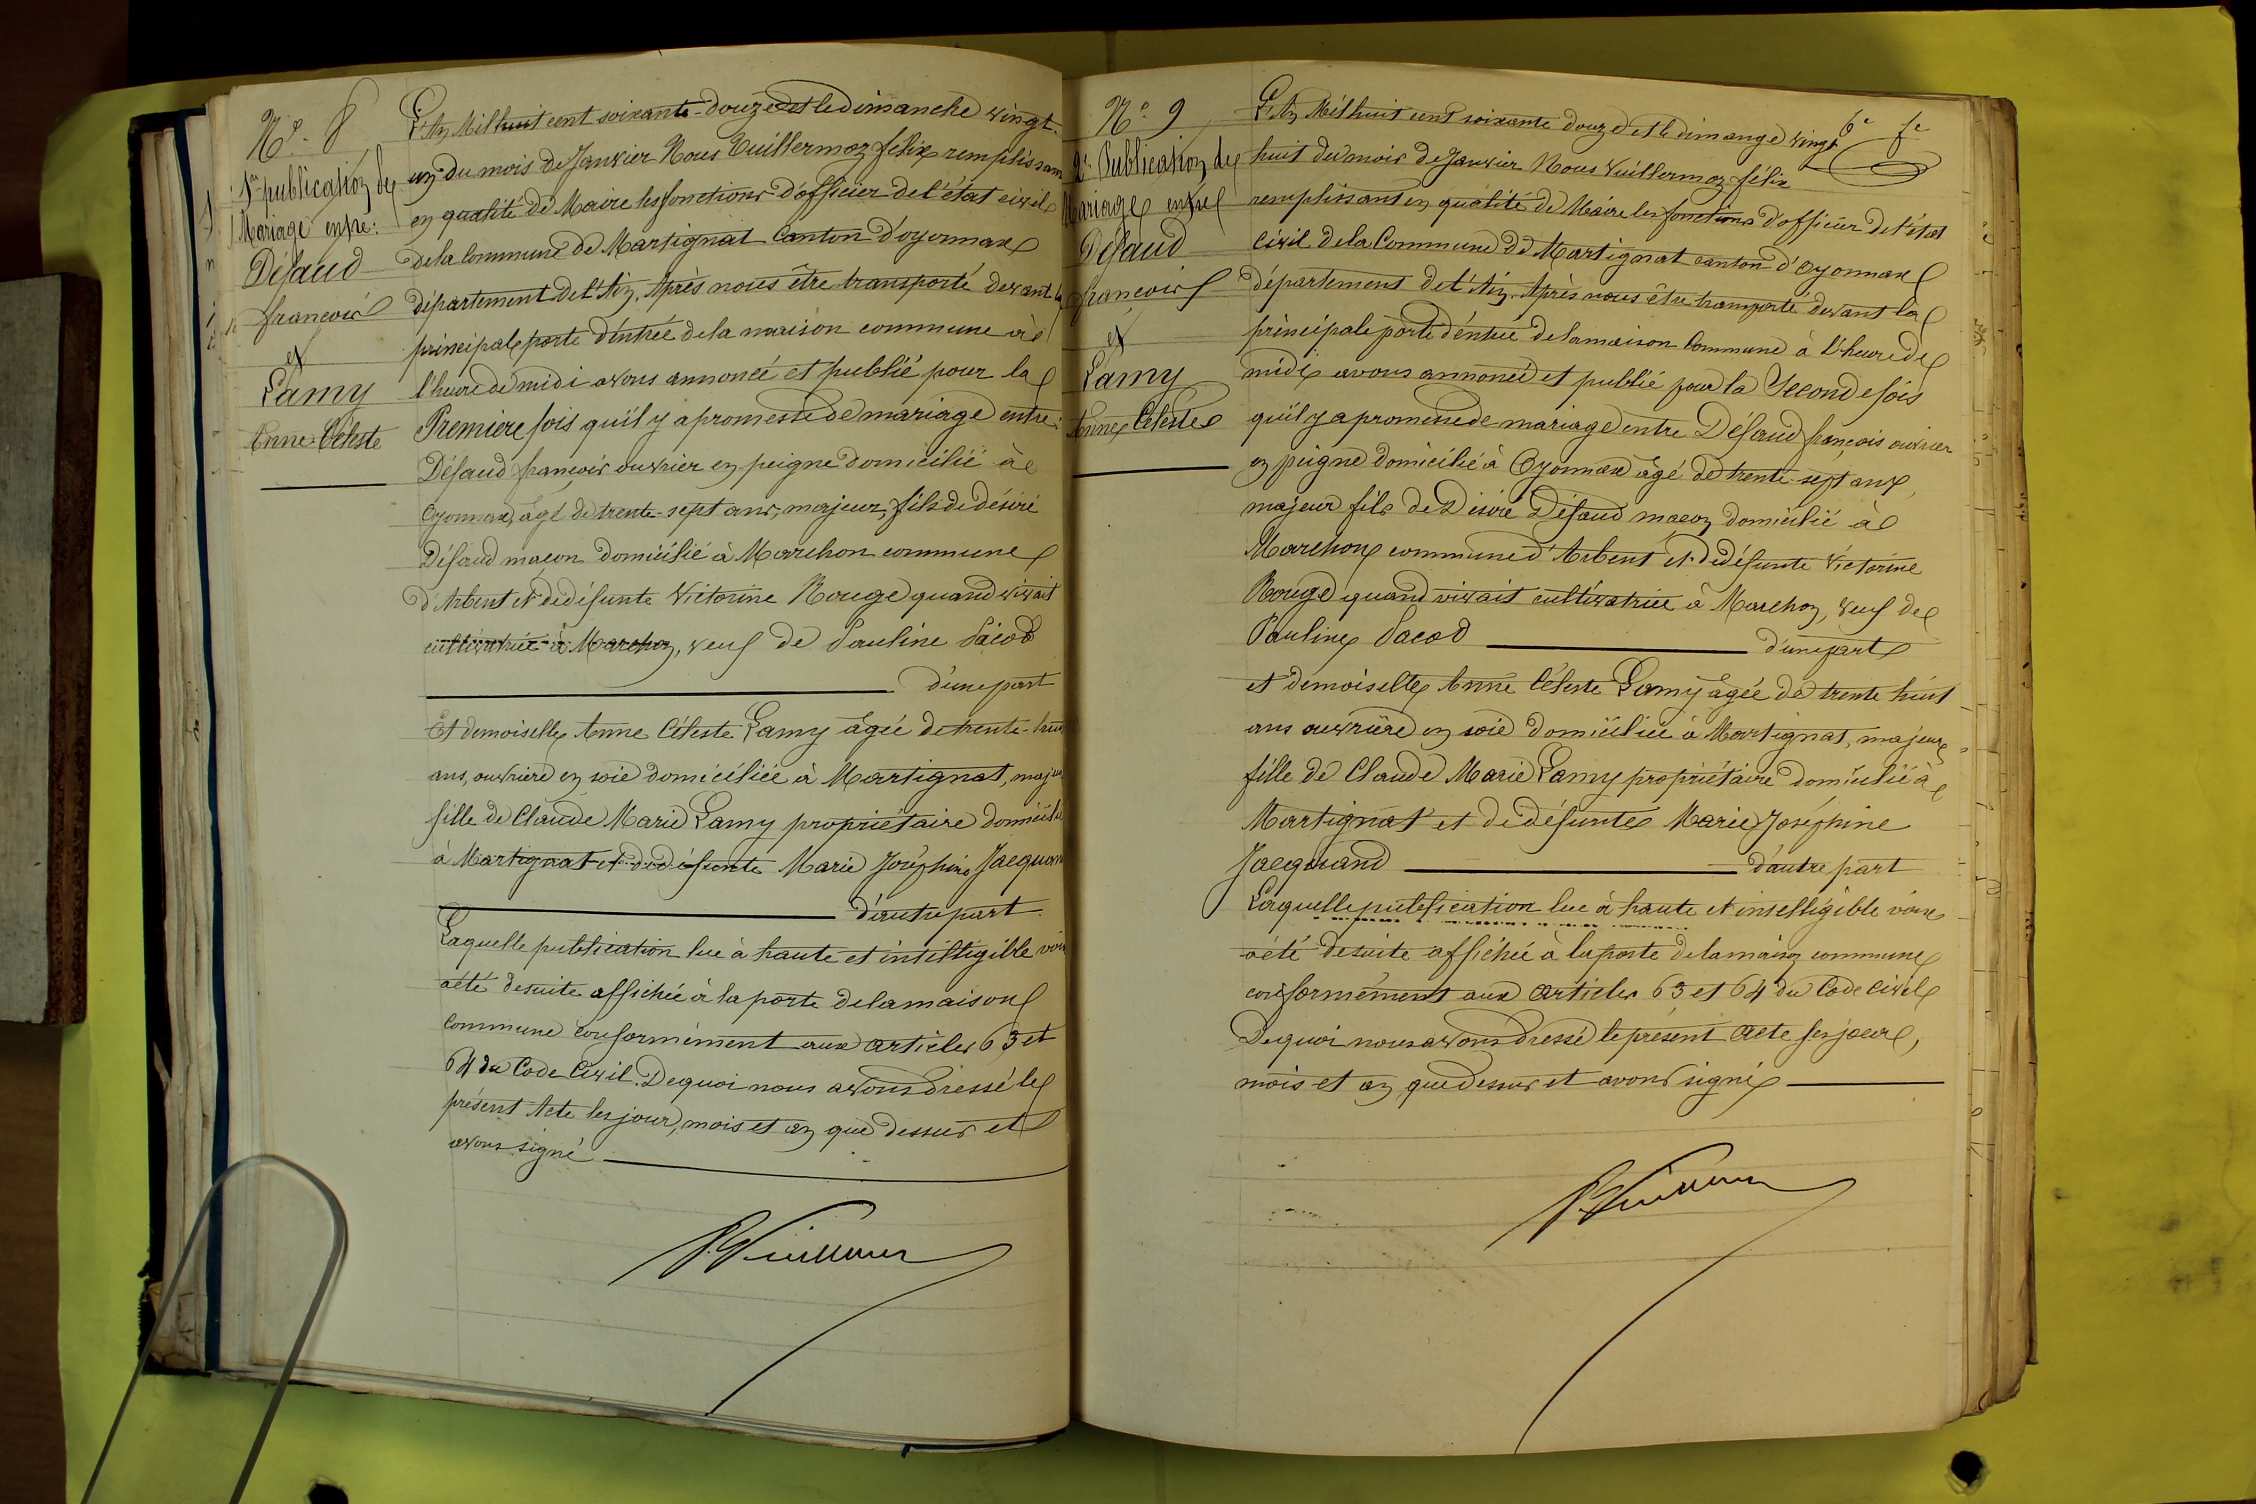 N.º 8
1re publication de
Mariage entre:
Défaud
françois
et
Lamy
Anne Céleste
L'An Mil huit cent soixante-douze et le dimanche vingt-
un du mois de Janvier Nous Vuillermoz félix remplissant
en qualité de Maire les fonctions d'officier de l'état civil
de la Commune de Martignat Canton d'oyonnax
département de l'Ain, Après nous être transporté devant la
principale porte d'entrée de la maison commune à
l'heure de midi avons annoncé et publié pour la
Première fois qu'il y a promesse de mariage entre:
Défaud françois ouvrier en peigne domicilié à
Oyonnax, âgé de trente-sept ans, majeur, fils de désiré
Défaud maçon domicilié à Marchon commune
d'Arbent et de défunte Victorine Rouge quand vivait
cultivatrice à Marchon, veuf de Pauline Jacod
d'une part
Et demoiselle Anne Céleste Lamy âgée de trente-huit
ans, ouvrière en soie domiciliée à Martignat, majeur
fille de Claude Marie Lamy propriétaire domicilié
à Martignat et de défunte Marie Joséphine Jacquand
d'autre part.
Laquelle publication lue à haute et intelligible voix
a été de suite affichée à la porte de la maison
commune conformément aux articles 63 et
64 du Code Civil. De quoi nous avons dressé le
présent Acte les jour, mois et an que dessus et
avons signé
N.º 9
2e Publication de
Mariage entre
Défaud
françois
et
Lamy
Anne Céleste
6e fe
L'An Mil huit cent soixante douze et le dimange vingt
huit du mois de Janvier Nous Vuillermoz félix
remplissant en qualité de Maire les fonctions d'officier de l'état
Civil de la Commune de Martignat canton d'Oyonnax
département de l'Ain. Après nous être transporté devant la
principale porte d'entrée de la maison Commune à l'heure de
midi avons annoncé et publié pour la Seconde fois
qu'il y a promesse de mariage entre Défaud françois ouvrier
en peigne domicilié à Oyonnax âgé de trente-sept ans,
majeur fils de Désiré Défaud maçon domicilié à
Marchon commune d'Arbent et de défunte Victorine
Rouge quand vivait cultivatrice à Marchon, veuf de
Pauline Jacod d'une part
et demoiselle Anne Céleste Lamy âgée de trente huit
ans ouvrière en soie domiciliée à Martignat, majeure
fille de Claude Marie Lamy propriétaire domicilié à
Martignat et de défunte Marie Joséphine
Jacquand d'autre part
Laquelle publication lue à haute et intelligible voix
a été de suite affichée à la porte de la maison commune
conformément aux articles 63 et 64 du Code Civil
De quoi nous avons dressé le présent Acte les jour,
mois et an que dessus et avons signé